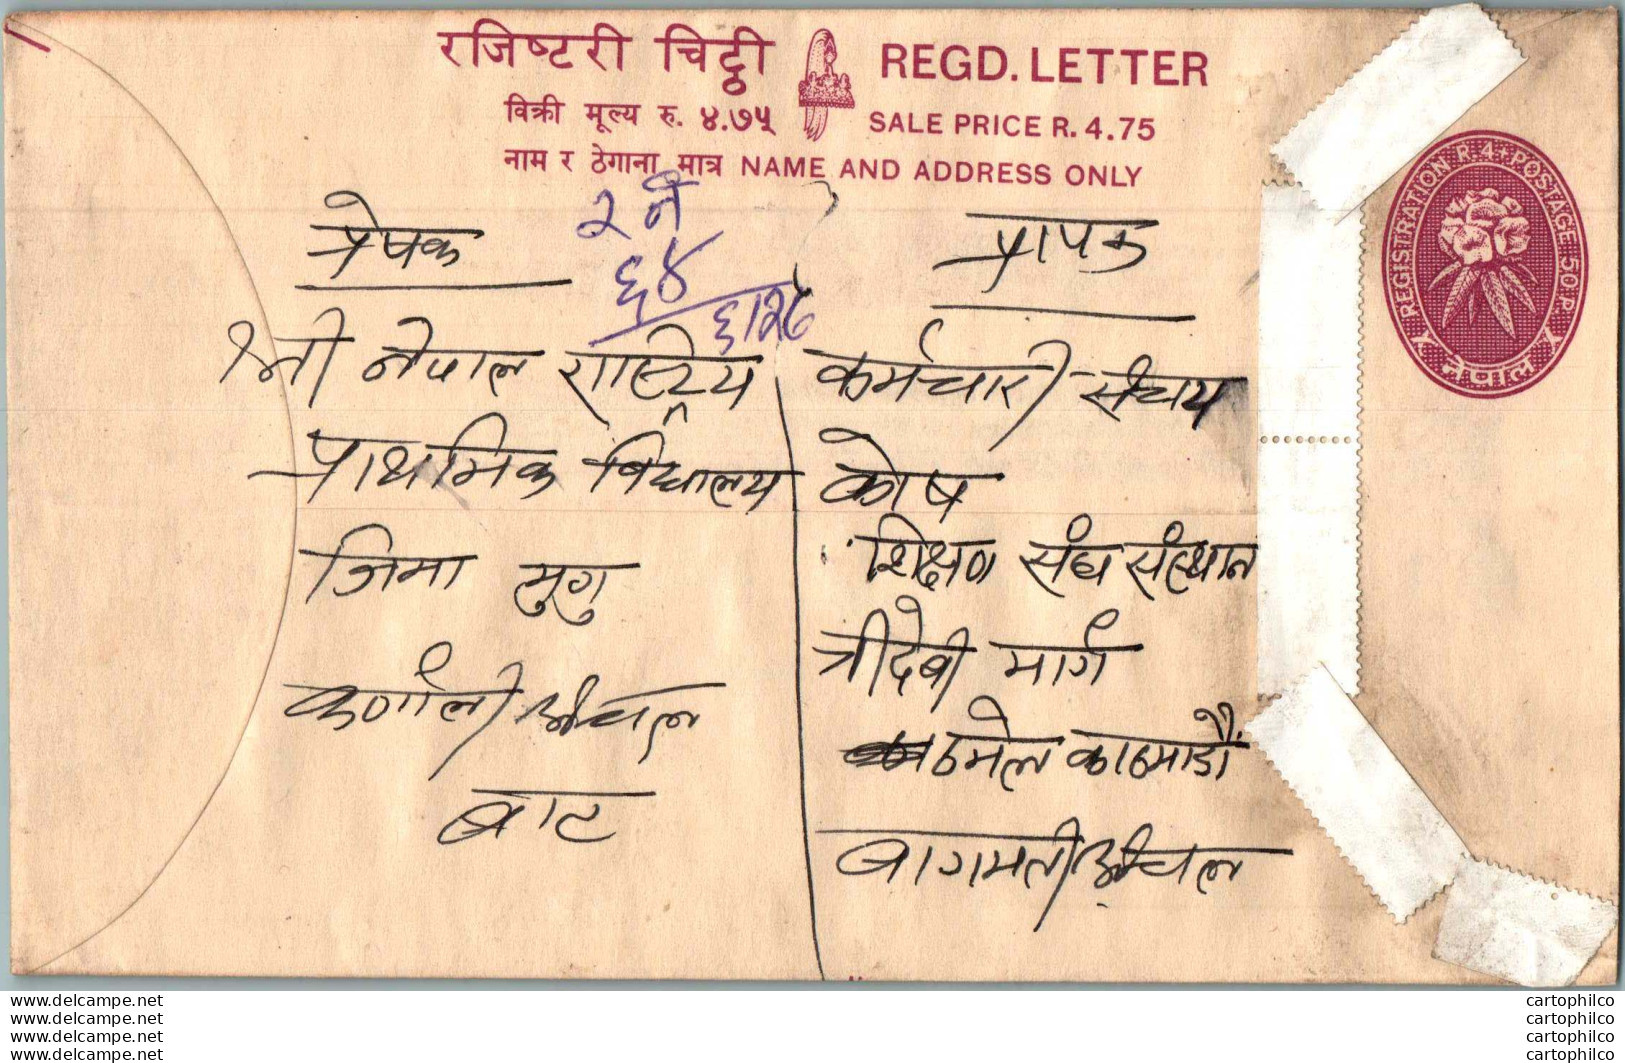 रजिष्टरी चिट्ठी REGD. LETTER
विक्री मूल्य रु. ४.७५ SALE PRICE R. 4.75
नाम र ठेगाना मात्र NAME AND ADDRESS ONLY
REGISTRATION R.4 POSTAGE 50 P.
नेपाल
२ नं
६४
प्रेषक
श्री नेपाल राष्ट्रिय
प्राथमिक विद्यालय
जिमा मुगु
कर्णाली अंचल
बाट
प्रापक
कर्मचारी संचय
कोष
शिक्षण संघ संस्थान
त्रीदेवी मार्ग
ठमेल काठमाडौं
बागमती अंचल
www.delcampe.net
www.delcampe.net
www.delcampe.net
www.delcampe.net
cartophilco
cartophilco
cartophilco
cartophilco